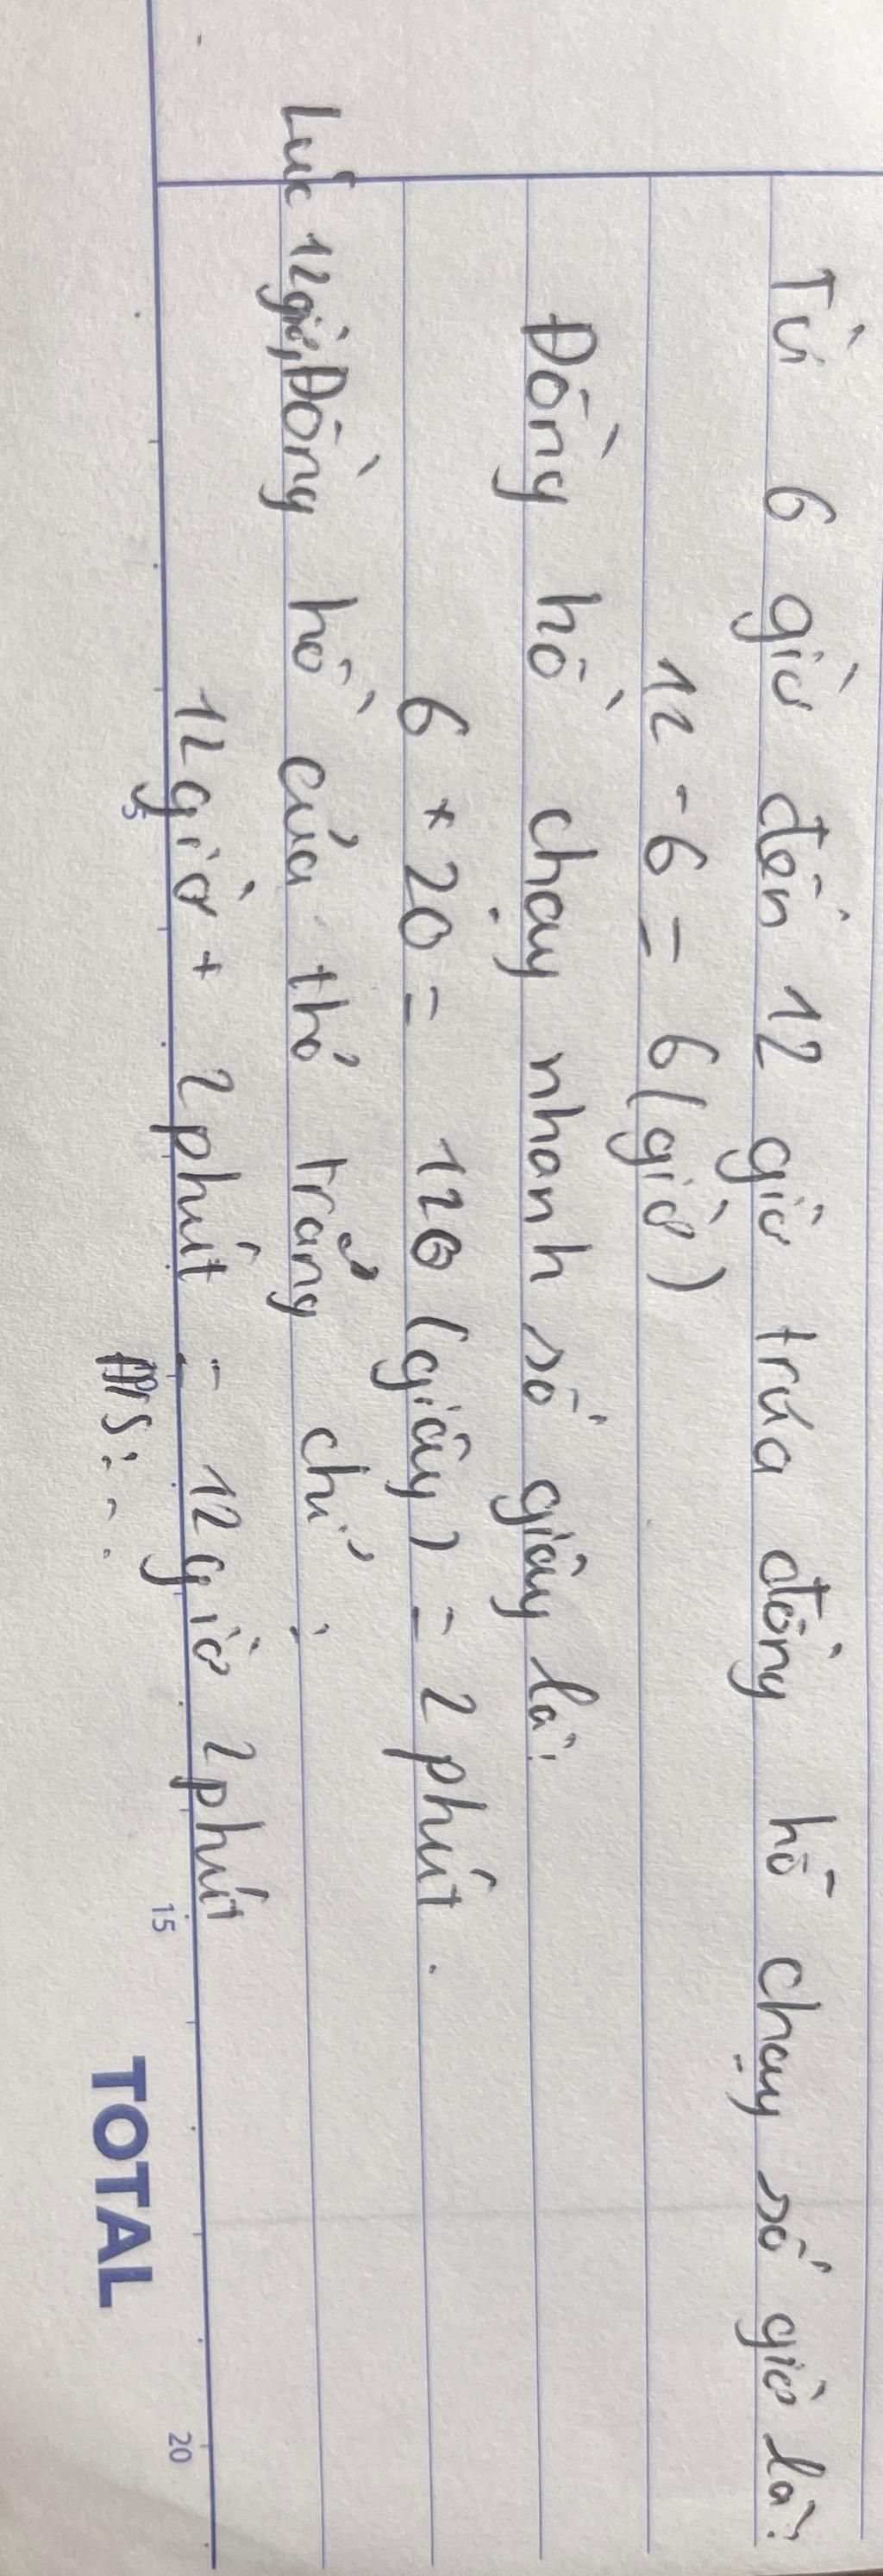 Từ 6 giờ đến 12 giờ trưa đồng hồ chạy số giờ là:
12 - 6 = 6 (giờ)
Đồng hồ chạy nhanh số giây là:
6 × 20 = 120 (giây) = 2 phút.
Lúc 12 giờ, Đồng hồ của thỏ trắng chỉ:
12 giờ + 2 phút = 12 giờ 2 phút
5 15 20
S: ..
TOTAL